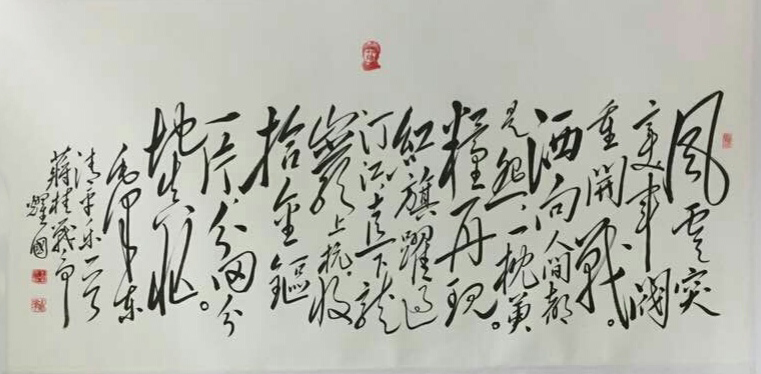 風雲突
變軍閥
重開戰。
洒向人间都
是怨,一枕黄
糧再現。
紅旗躍過
汀江,直下龍
巖上杭。收
拾金鏂
一片,分田分
地真忙。
毛澤東
清平樂一首
蔣桂戰爭
耀國